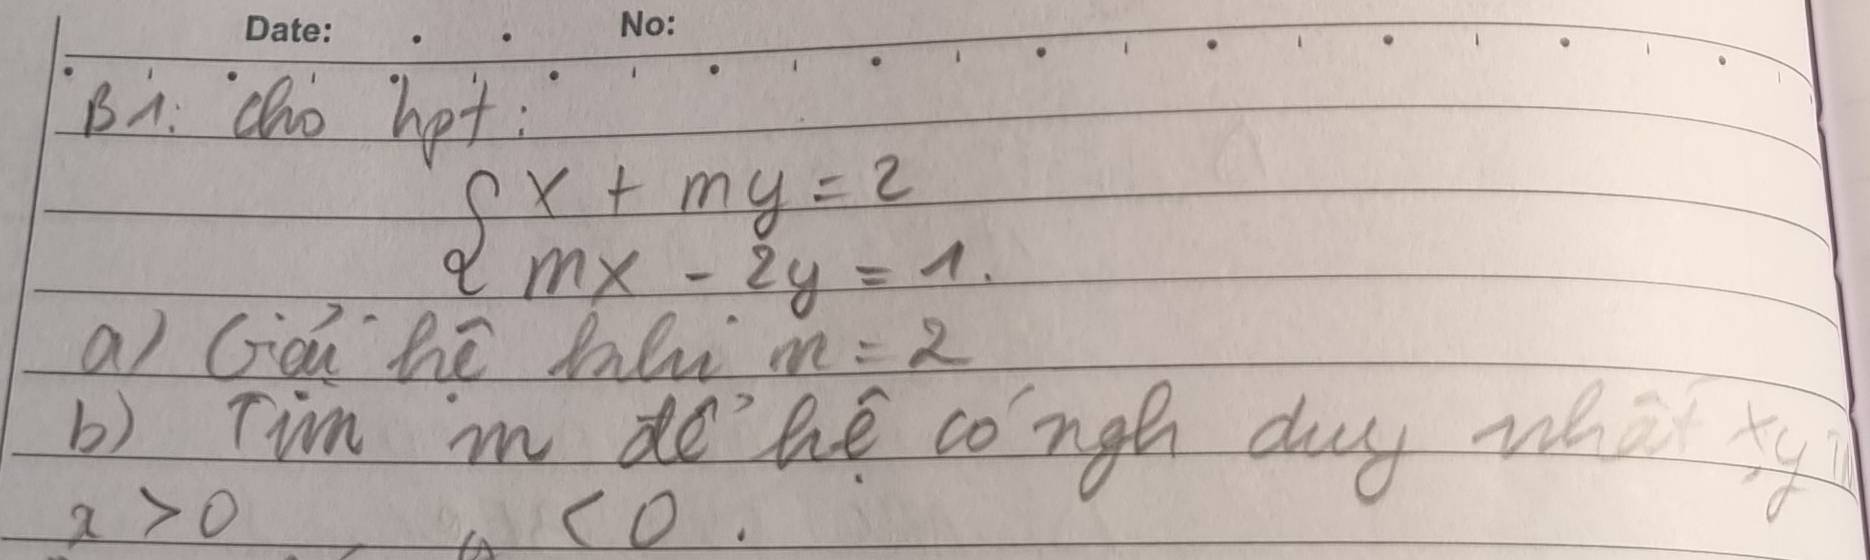 Date: . . No:
B1: Cho hpt:
{ x + my = 2
mx - 2y = 1.
a) Giải hệ khi m = 2
b) Tìm m để hệ có ngh duy nhất x,y
x > 0 y < 0.